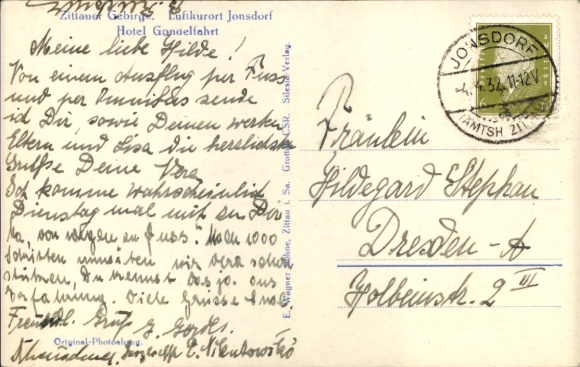 Zittauer Gebirge. Luftkurort Jonsdorf
Hotel Gondelfahrt
Meine liebe Hilde!
Von einem Ausflug per Fuss
und per Omnibus sende
ich Dir, sowie Deinen werten
Eltern und Lisa die herzlichsten
Grüße Deine Vera
Ich komme wahrscheinlich
Dienstag mal mit zu Dir
Ja, von wegen zu Fuss! Nach 1000
Schritten mussten wir Vera schon
stützen, Du kennst das ja aus
Erfahrung. Viele Grüsse
Freundl. Gruß
Original-Photoabzug.
E. Wagner Söhne, Zittau i. Sa. Grottau CSR. Silesia-Verlag.
JONSDORF
4.4.32.11-12V
(AMTSH. ZIT
Fräulein
Hildegard Stephan
Dresden-A
Holbeinstr. 2 III